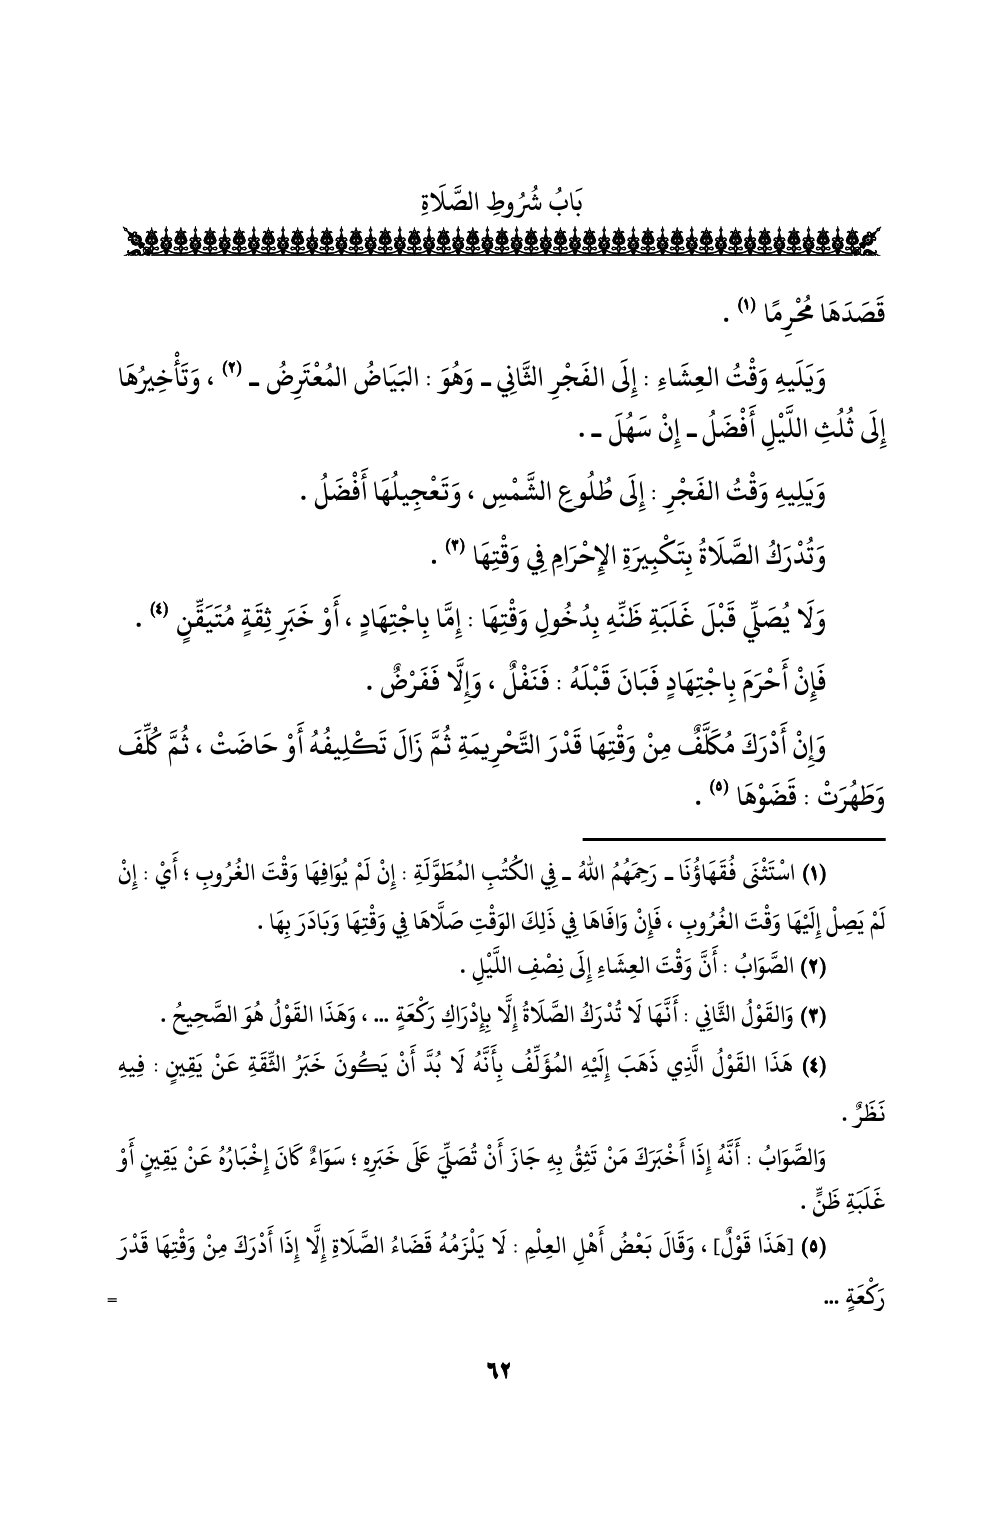 بَابُ شُرُوطِ الصَّلَاةِ
قَصَدَهَا مُحْرِمًا (١) .
وَيَلَيهِ وَقْتُ العِشَاءِ : إِلَى الفَجْرِ الثَّانِي ـ وَهُوَ : البَيَاضُ المُعْتَرِضُ ـ (٢) ، وَتَأْخِيرُهَا
إِلَى ثُلُثِ اللَّيْلِ أَفْضَلُ ـ إِنْ سَهُلَ ـ .
وَيَلِيهِ وَقْتُ الفَجْرِ : إِلَى طُلُوعِ الشَّمْسِ ، وَتَعْجِيلُهَا أَفْضَلُ .
وَتُدْرَكُ الصَّلَاةُ بِتَكْبِيرَةِ الإِحْرَامِ فِي وَقْتِهَا (٣) .
وَلَا يُصَلِّي قَبْلَ غَلَبَةِ ظَنِّهِ بِدُخُولِ وَقْتِهَا : إِمَّا بِاجْتِهَادٍ ، أَوْ خَبَرِ ثِقَةٍ مُتَيَقِّنٍ (٤) .
فَإِنْ أَحْرَمَ بِاجْتِهَادٍ فَبَانَ قَبْلَهُ : فَنَفْلٌ ، وَإِلَّا فَفَرْضٌ .
وَإِنْ أَدْرَكَ مُكَلَّفٌ مِنْ وَقْتِهَا قَدْرَ التَّحْرِيمَةِ ثُمَّ زَالَ تَكْلِيفُهُ أَوْ حَاضَتْ ، ثُمَّ كُلِّفَ
وَطَهُرَتْ : قَضَوْهَا (٥) .
(١) اسْتَثْنَى فُقَهَاؤُنَا ـ رَحِمَهُمُ اللهُ ـ فِي الكُتُبِ المُطَوَّلَةِ : إِنْ لَمْ يُوَافِهَا وَقْتَ الغُرُوبِ ؛ أَيْ : إِنْ
لَمْ يَصِلْ إِلَيْهَا وَقْتَ الغُرُوبِ ، فَإِنْ وَافَاهَا فِي ذَلِكَ الوَقْتِ صَلَّاهَا فِي وَقْتِهَا وَبَادَرَ بِهَا .
(٢) الصَّوَابُ : أَنَّ وَقْتَ العِشَاءِ إِلَى نِصْفِ اللَّيْلِ .
(٣) وَالقَوْلُ الثَّانِي : أَنَّهَا لَا تُدْرَكُ الصَّلَاةُ إِلَّا بِإِدْرَاكِ رَكْعَةٍ ... ، وَهَذَا القَوْلُ هُوَ الصَّحِيحُ .
(٤) هَذَا القَوْلُ الَّذِي ذَهَبَ إِلَيْهِ المُؤَلِّفُ بِأَنَّهُ لَا بُدَّ أَنْ يَكُونَ خَبَرُ الثِّقَةِ عَنْ يَقِينٍ : فِيهِ
نَظَرٌ .
وَالصَّوَابُ : أَنَّهُ إِذَا أَخْبَرَكَ مَنْ تَثِقُ بِهِ جَازَ أَنْ تُصَلِّيَ عَلَى خَبَرِهِ ؛ سَوَاءٌ كَانَ إِخْبَارُهُ عَنْ يَقِينٍ أَوْ
غَلَبَةِ ظَنٍّ .
(٥) [هَذَا قَوْلٌ] ، وَقَالَ بَعْضُ أَهْلِ العِلْمِ : لَا يَلْزَمُهُ قَضَاءُ الصَّلَاةِ إِلَّا إِذَا أَدْرَكَ مِنْ وَقْتِهَا قَدْرَ
رَكْعَةٍ ... =
٦٢